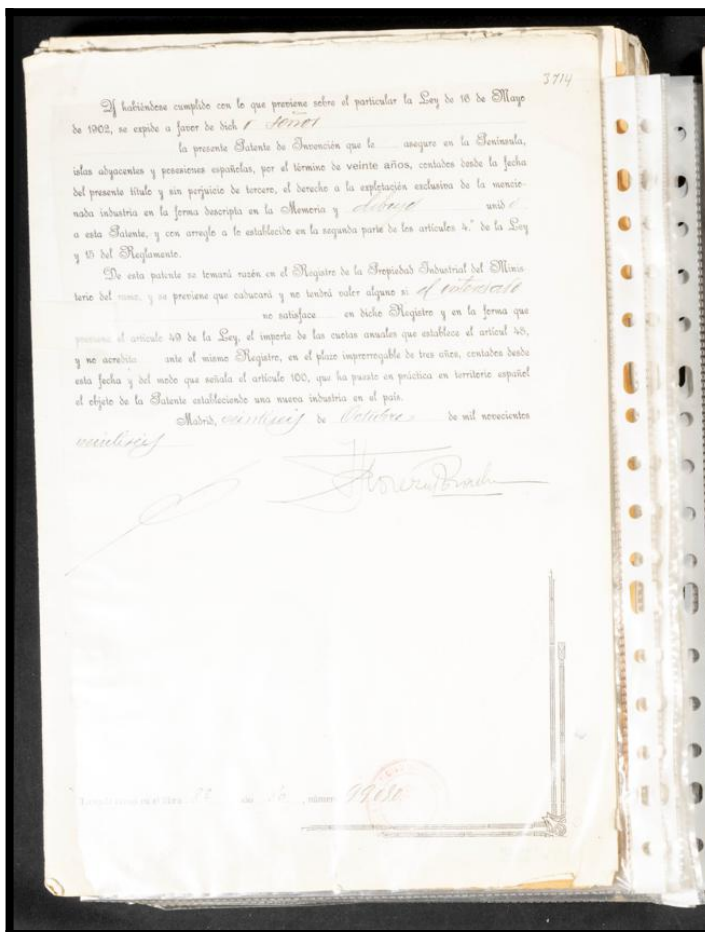 3714
Y habiéndose cumplido con lo que previene sobre el particular la Ley de 16 de Mayo
de 1902, se expide a favor de dich o señor
la presente Patente de Invención que le asegure en la Península,
islas adyacentes y posesiones españolas, por el término de veinte años, contados desde la fecha
del presente título y sin perjuicio de tercero, el derecho a la explotación exclusiva de la mencio-
nada industria en la forma descripta en la Memoria y unid
a esta Patente, y con arreglo a lo establecido en la segunda parte de los artículos 4.º de la Ley
y 15 del Reglamento.
De esta patente se tomará razón en el Registro de la Propiedad Industrial del Minis-
terio del ramo, y se previene que caducará y no tendrá valor alguno si el interesado
no satisface en dicho Registro y en la forma que
previene el artículo 49 de la Ley, el importe de las cuotas anuales que establece el artícul 48,
y no acredita ante el mismo Registro, en el plazo improrrogable de tres años, contados desde
esta fecha y del modo que señala el artículo 100, que ha puesto en práctica en territorio español
el objeto de la Patente estableciendo una nueva industria en el país.
Madrid, veintiseis de Octubre de mil novecientos
veintiseis
, número